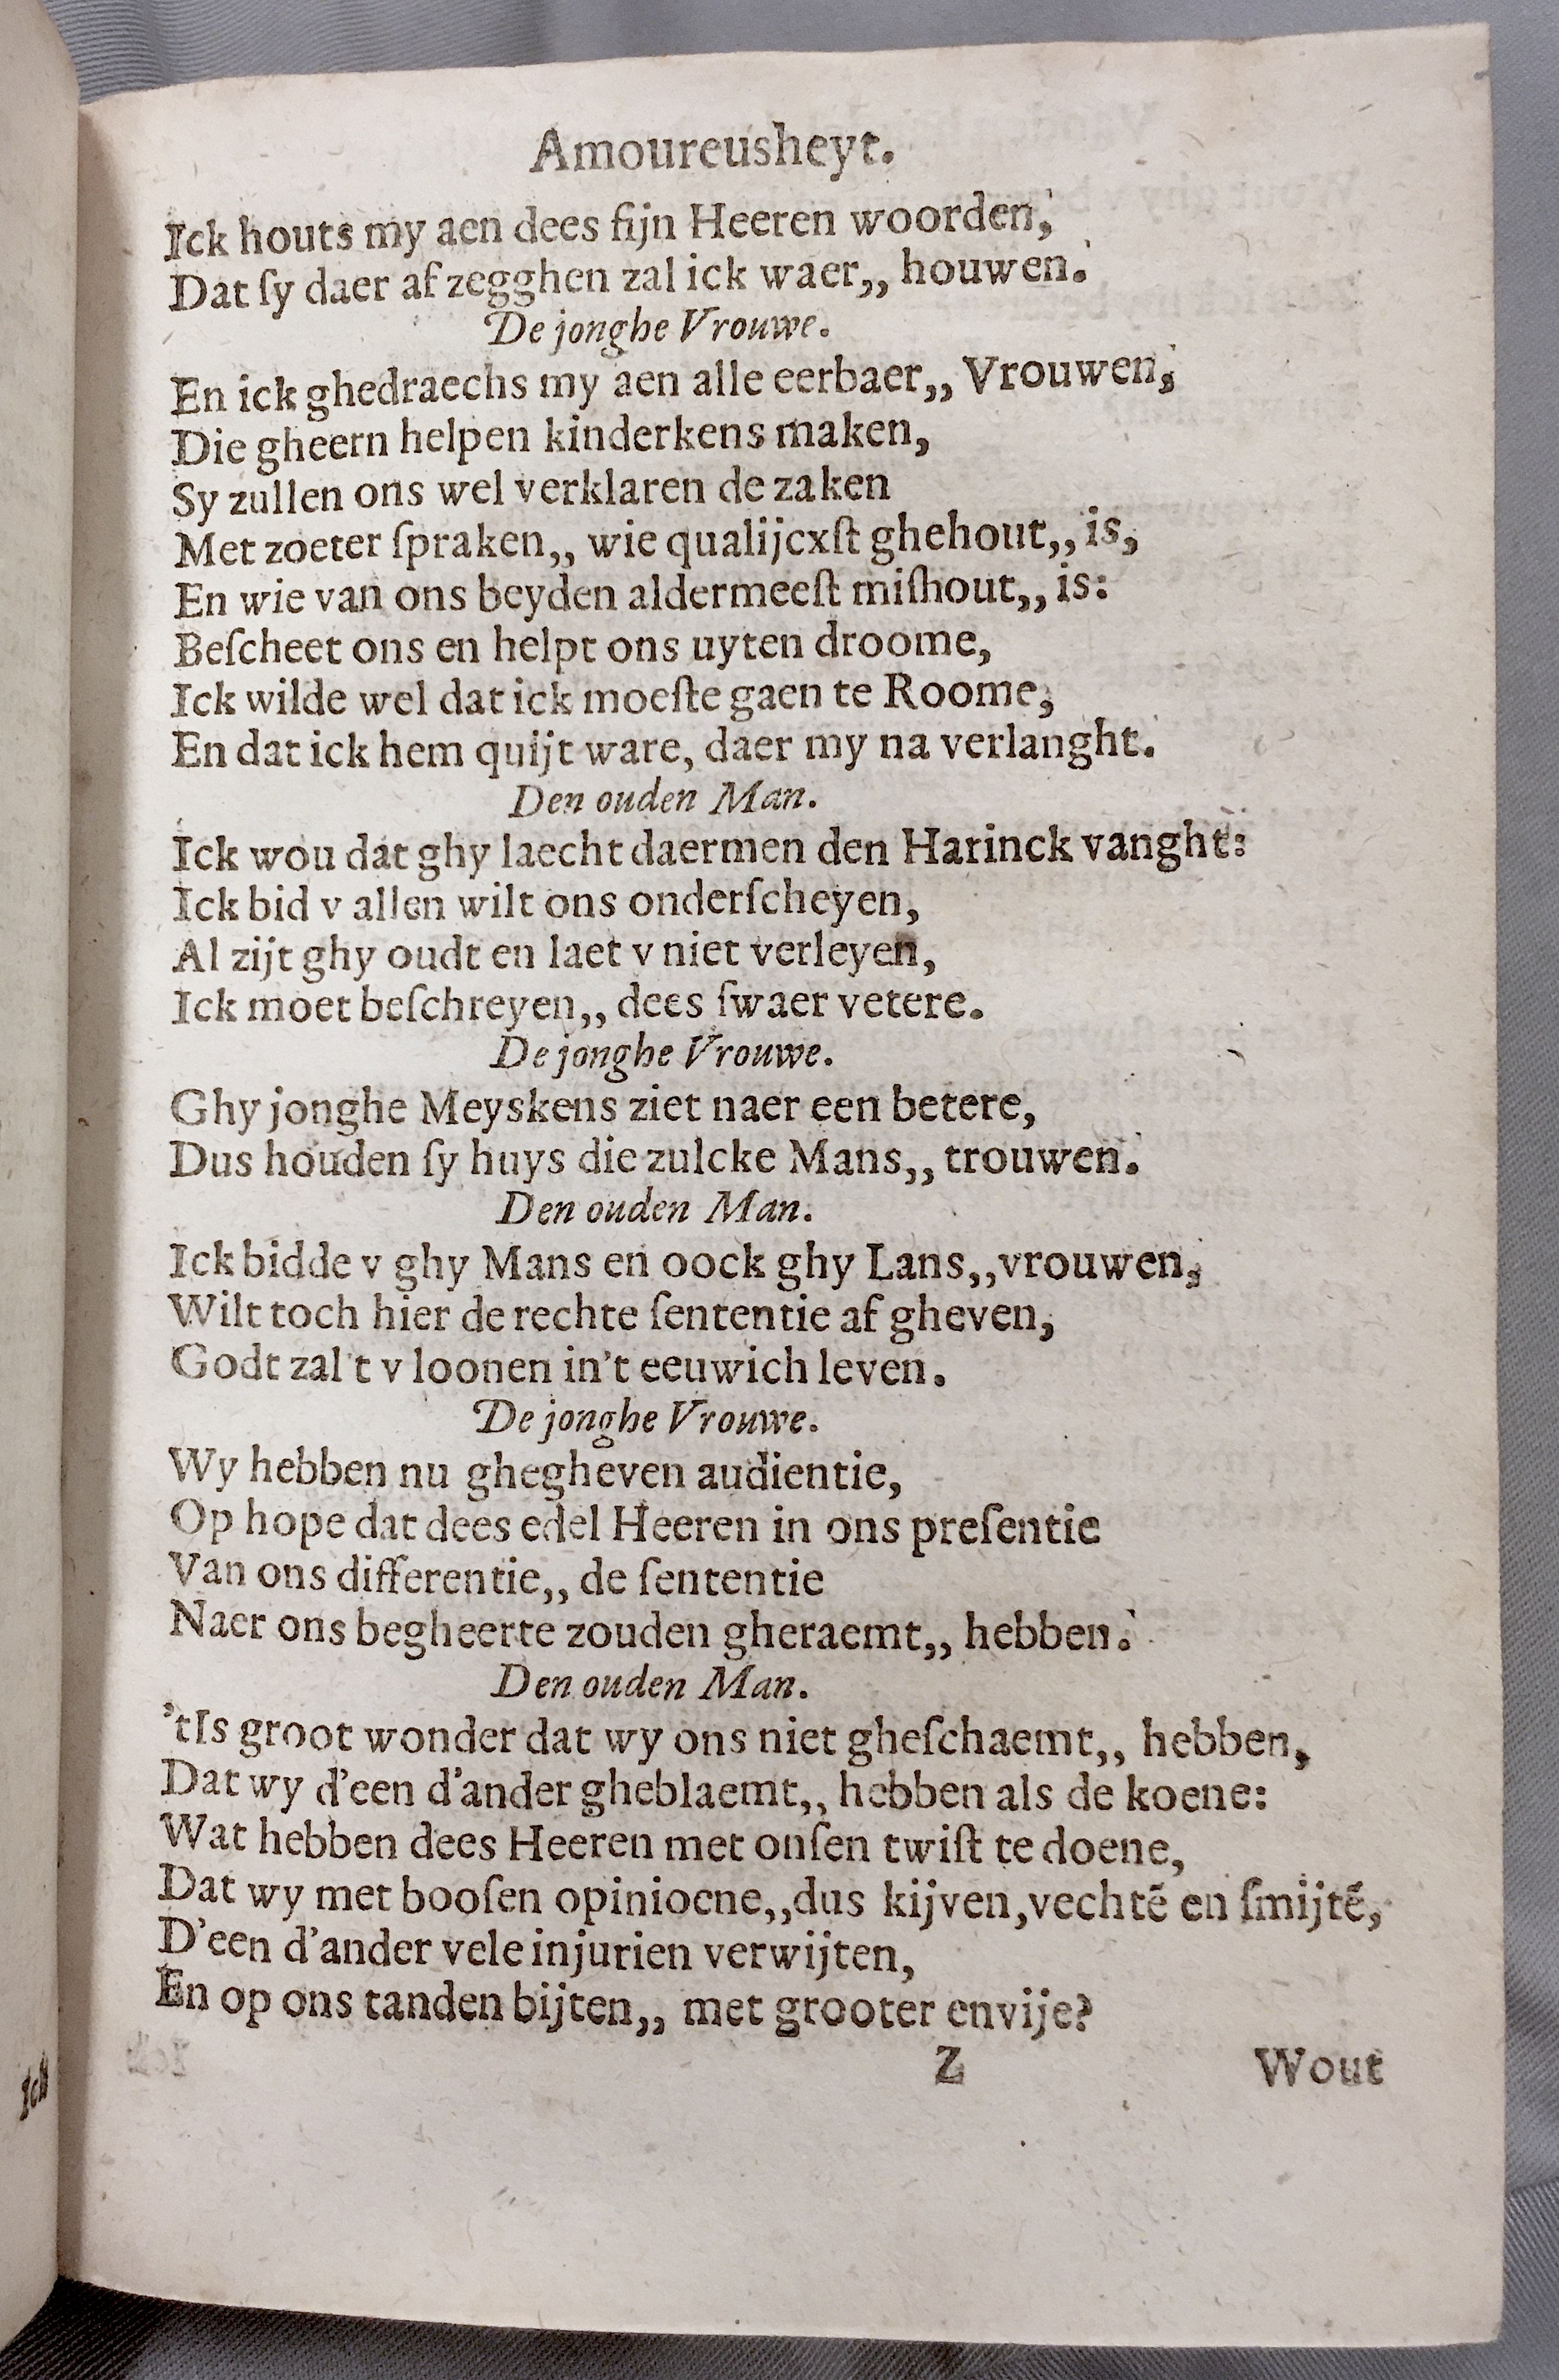 Amoureusheyt.
Ick houts my aen dees fijn Heeren woorden,
Dat ſy daer af zegghen zal ick waer,, houwen.
De jonghe Vrouwe.
En ick ghedraechs my aen alle eerbaer,, Vrouwen,
Die gheern helpen kinderkens maken,
Sy zullen ons wel verklaren de zaken
Met zoeter ſpraken,, wie qualijcxſt ghehout,, is,
En wie van ons beyden aldermeeſt miſhout,, is:
Beſcheet ons en helpt ons uyten droome,
Ick wilde wel dat ick moeſte gaen te Roome,
En dat ick hem quijt ware, daer my na verlanght.
Den ouden Man.
Ick wou dat ghy laecht daermen den Harinck vanght:
Ick bid v allen wilt ons onderſcheyen,
Al zijt ghy oudt en laet v niet verleyen,
Ick moet beſchreyen,, dees ſwaer vetere.
De jonghe Vrouwe.
Ghy jonghe Meyskens ziet naer een betere,
Dus houden ſy huys die zulcke Mans,, trouwen.
Den ouden Man.
Ick bidde v ghy Mans en oock ghy Lans,,vrouwen,
Wilt toch hier de rechte ſententie af gheven,
Godt zal't v loonen in't eeuwich leven.
De jonghe Vrouwe.
Wy hebben nu ghegheven audientie,
Op hope dat dees edel Heeren in ons preſentie
Van ons differentie,, de ſententie
Naer ons begheerte zouden gheraemt,, hebben.
Den ouden Man.
'tIs groot wonder dat wy ons niet gheſchaemt,, hebben,
Dat wy d'een d'ander gheblaemt,, hebben als de koene:
Wat hebben dees Heeren met onſen twiſt te doene,
Dat wy met booſen opinioene,,dus kijven,vechtē en ſmijtē,
D'een d'ander vele injurien verwijten,
En op ons tanden bijten,, met grooter envije?
Z Wout